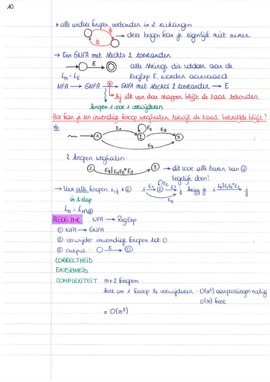 10.
→ alle andere knopen verbonden in 2 richtingen
deze bogen kan je eigenlijk niet nemen
→ Een GNFA met slechts 2 toestanden
E
alle strings die voldoen aan de
RegExp E worden aanvaard
L_M = L_E
NFA → GNFA → GNFA met slechts 2 toestanden → E
bij elk van deze stappen blijft de taal behouden
knopen 1 voor 1 verwijderen
Hoe kan je een inwendige knoop weghalen terwijl de taal dezelfde blijft?
E4
E2
E1 E3
1 2 3
2 knopen weghalen:
E4|E1E2*E3
→ dit voor alle buren van 2
tegelijk doen!
→ Voor alle knopen i, j ≠
krijg je
in 1 stap
ALGORITME NFA → RegExp
① NFA → GNFA
② verwijder inwendige knopen tot 0
③ output: E
CORRECTHEID
EINDIGHEID
COMPLEXITEIT n+2 knopen
kost om 1 knoop te verwijderen: O(n²) aanpassingen nodig
O(n) keer
= O(n³)